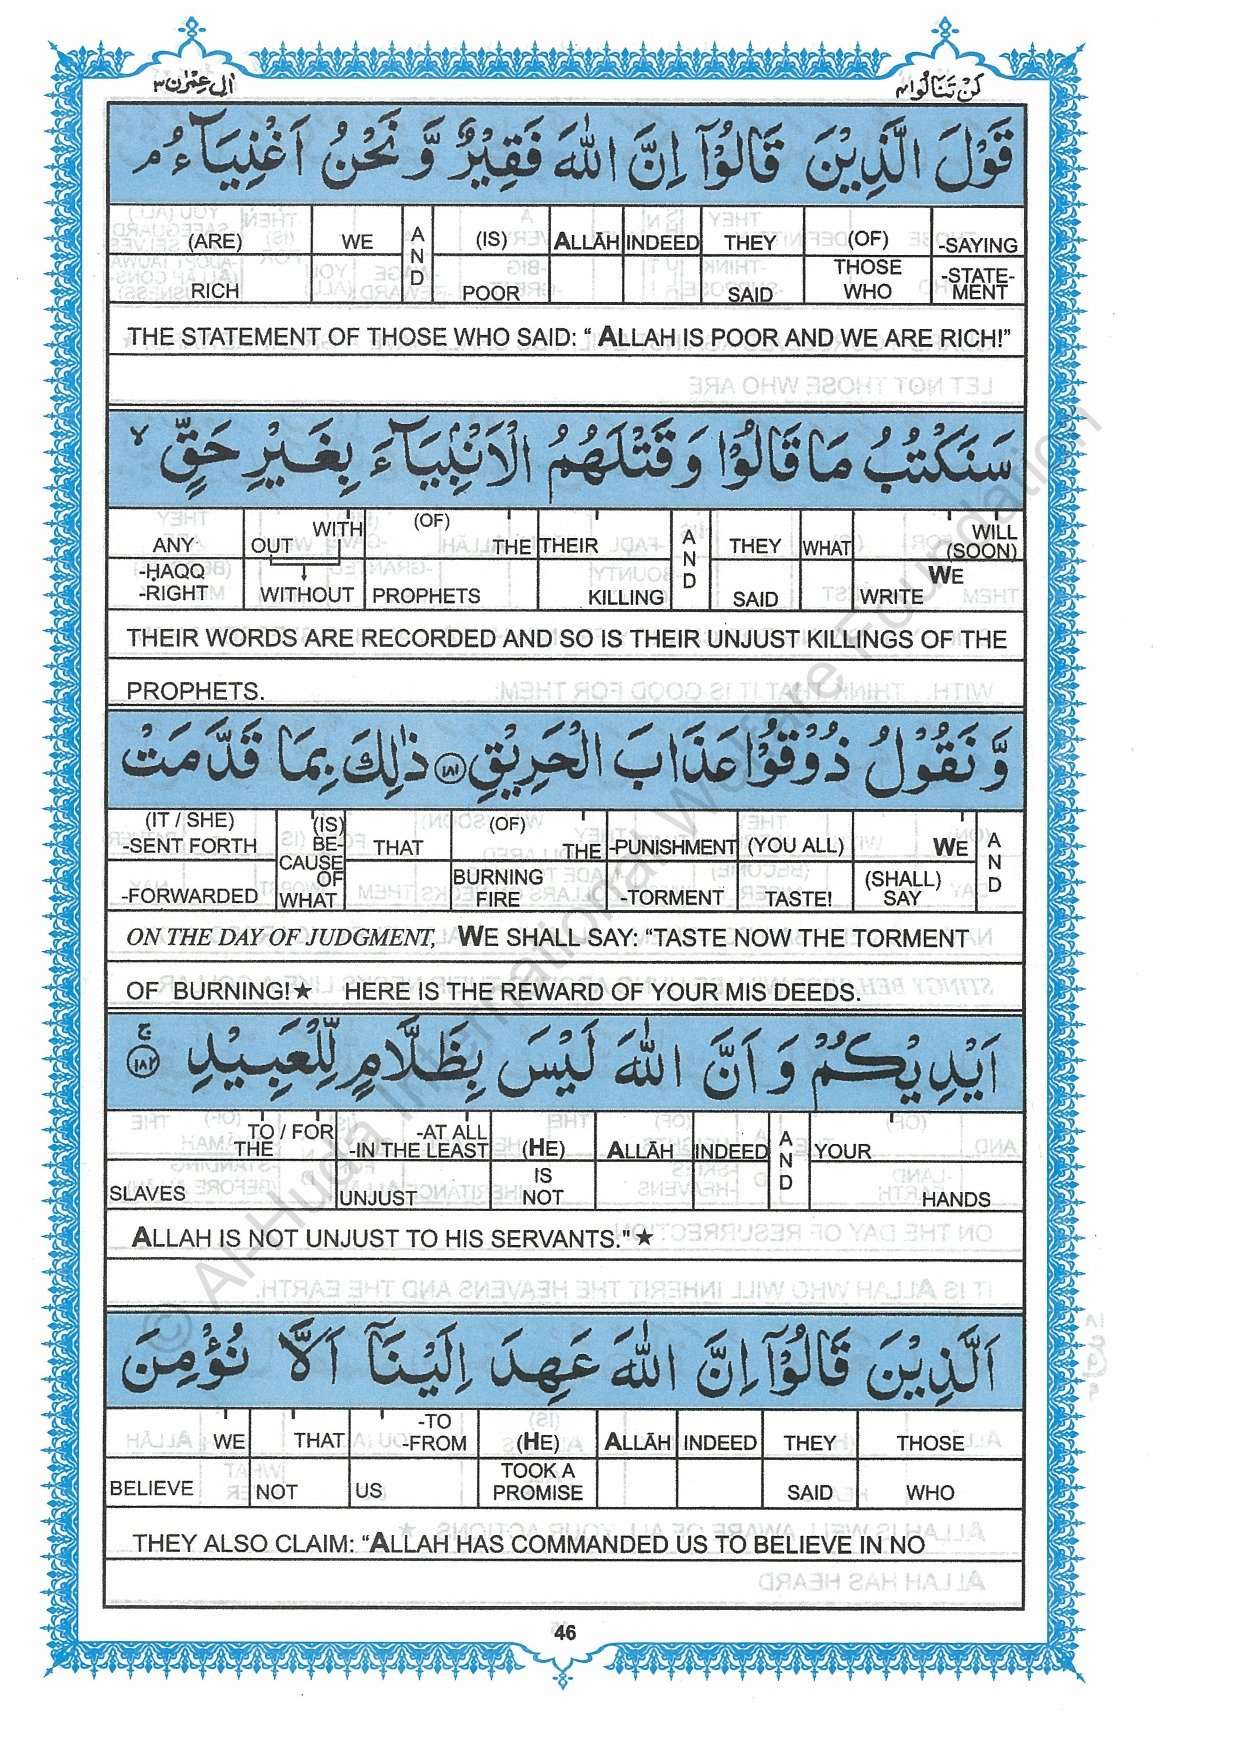 اٰلِ عِمْرٰن ٣
لَنْ تَنَالُوا ٤
قَوْلَ الَّذِیْنَ قَالُوْۤا اِنَّ اللّٰهَ فَقِیْرٌ وَّ نَحْنُ اَغْنِیَآءُ ۘ
(ARE) WE AND (IS) ALLĀH INDEED THEY (OF) -SAYING
RICH POOR SAID THOSE WHO -STATE-MENT
THE STATEMENT OF THOSE WHO SAID: “ ALLAH IS POOR AND WE ARE RICH!”
سَنَكْتُبُ مَا قَالُوْا وَ قَتْلَهُمُ الْاَنْۢبِیَآءَ بِغَیْرِ حَقٍّ ۙ
ANY OUT WITH (OF) THE THEIR AND THEY WHAT WILL (SOON) WE
-ḤAQQ -RIGHT WITHOUT PROPHETS KILLING SAID WRITE
THEIR WORDS ARE RECORDED AND SO IS THEIR UNJUST KILLINGS OF THE
PROPHETS.
وَّ نَقُوْلُ ذُوْقُوْا عَذَابَ الْحَرِیْقِ ﴿١٨١﴾ ذٰلِكَ بِمَا قَدَّمَتْ
(IT / SHE) -SENT FORTH (IS) BE-CAUSE OF WHAT THAT (OF) THE -PUNISHMENT (YOU ALL) WE AND
-FORWARDED BURNING FIRE -TORMENT TASTE! (SHALL) SAY
ON THE DAY OF JUDGMENT, WE SHALL SAY: “TASTE NOW THE TORMENT
OF BURNING!★ HERE IS THE REWARD OF YOUR MIS DEEDS.
اَیْدِیْكُمْ وَ اَنَّ اللّٰهَ لَیْسَ بِظَلَّامٍ لِّلْعَبِیْدِ ﴿١٨٢﴾ ۚ
TO / FOR THE -AT ALL -IN THE LEAST (HE) ALLĀH INDEED AND YOUR
SLAVES UNJUST IS NOT HANDS
ALLAH IS NOT UNJUST TO HIS SERVANTS."★
اَلَّذِیْنَ قَالُوْۤا اِنَّ اللّٰهَ عَهِدَ اِلَیْنَاۤ اَلَّا نُؤْمِنَ
WE THAT -TO -FROM (HE) ALLĀH INDEED THEY THOSE
BELIEVE NOT US TOOK A PROMISE SAID WHO
THEY ALSO CLAIM: “ALLAH HAS COMMANDED US TO BELIEVE IN NO
46
© Al-Huda International Welfare Foundation